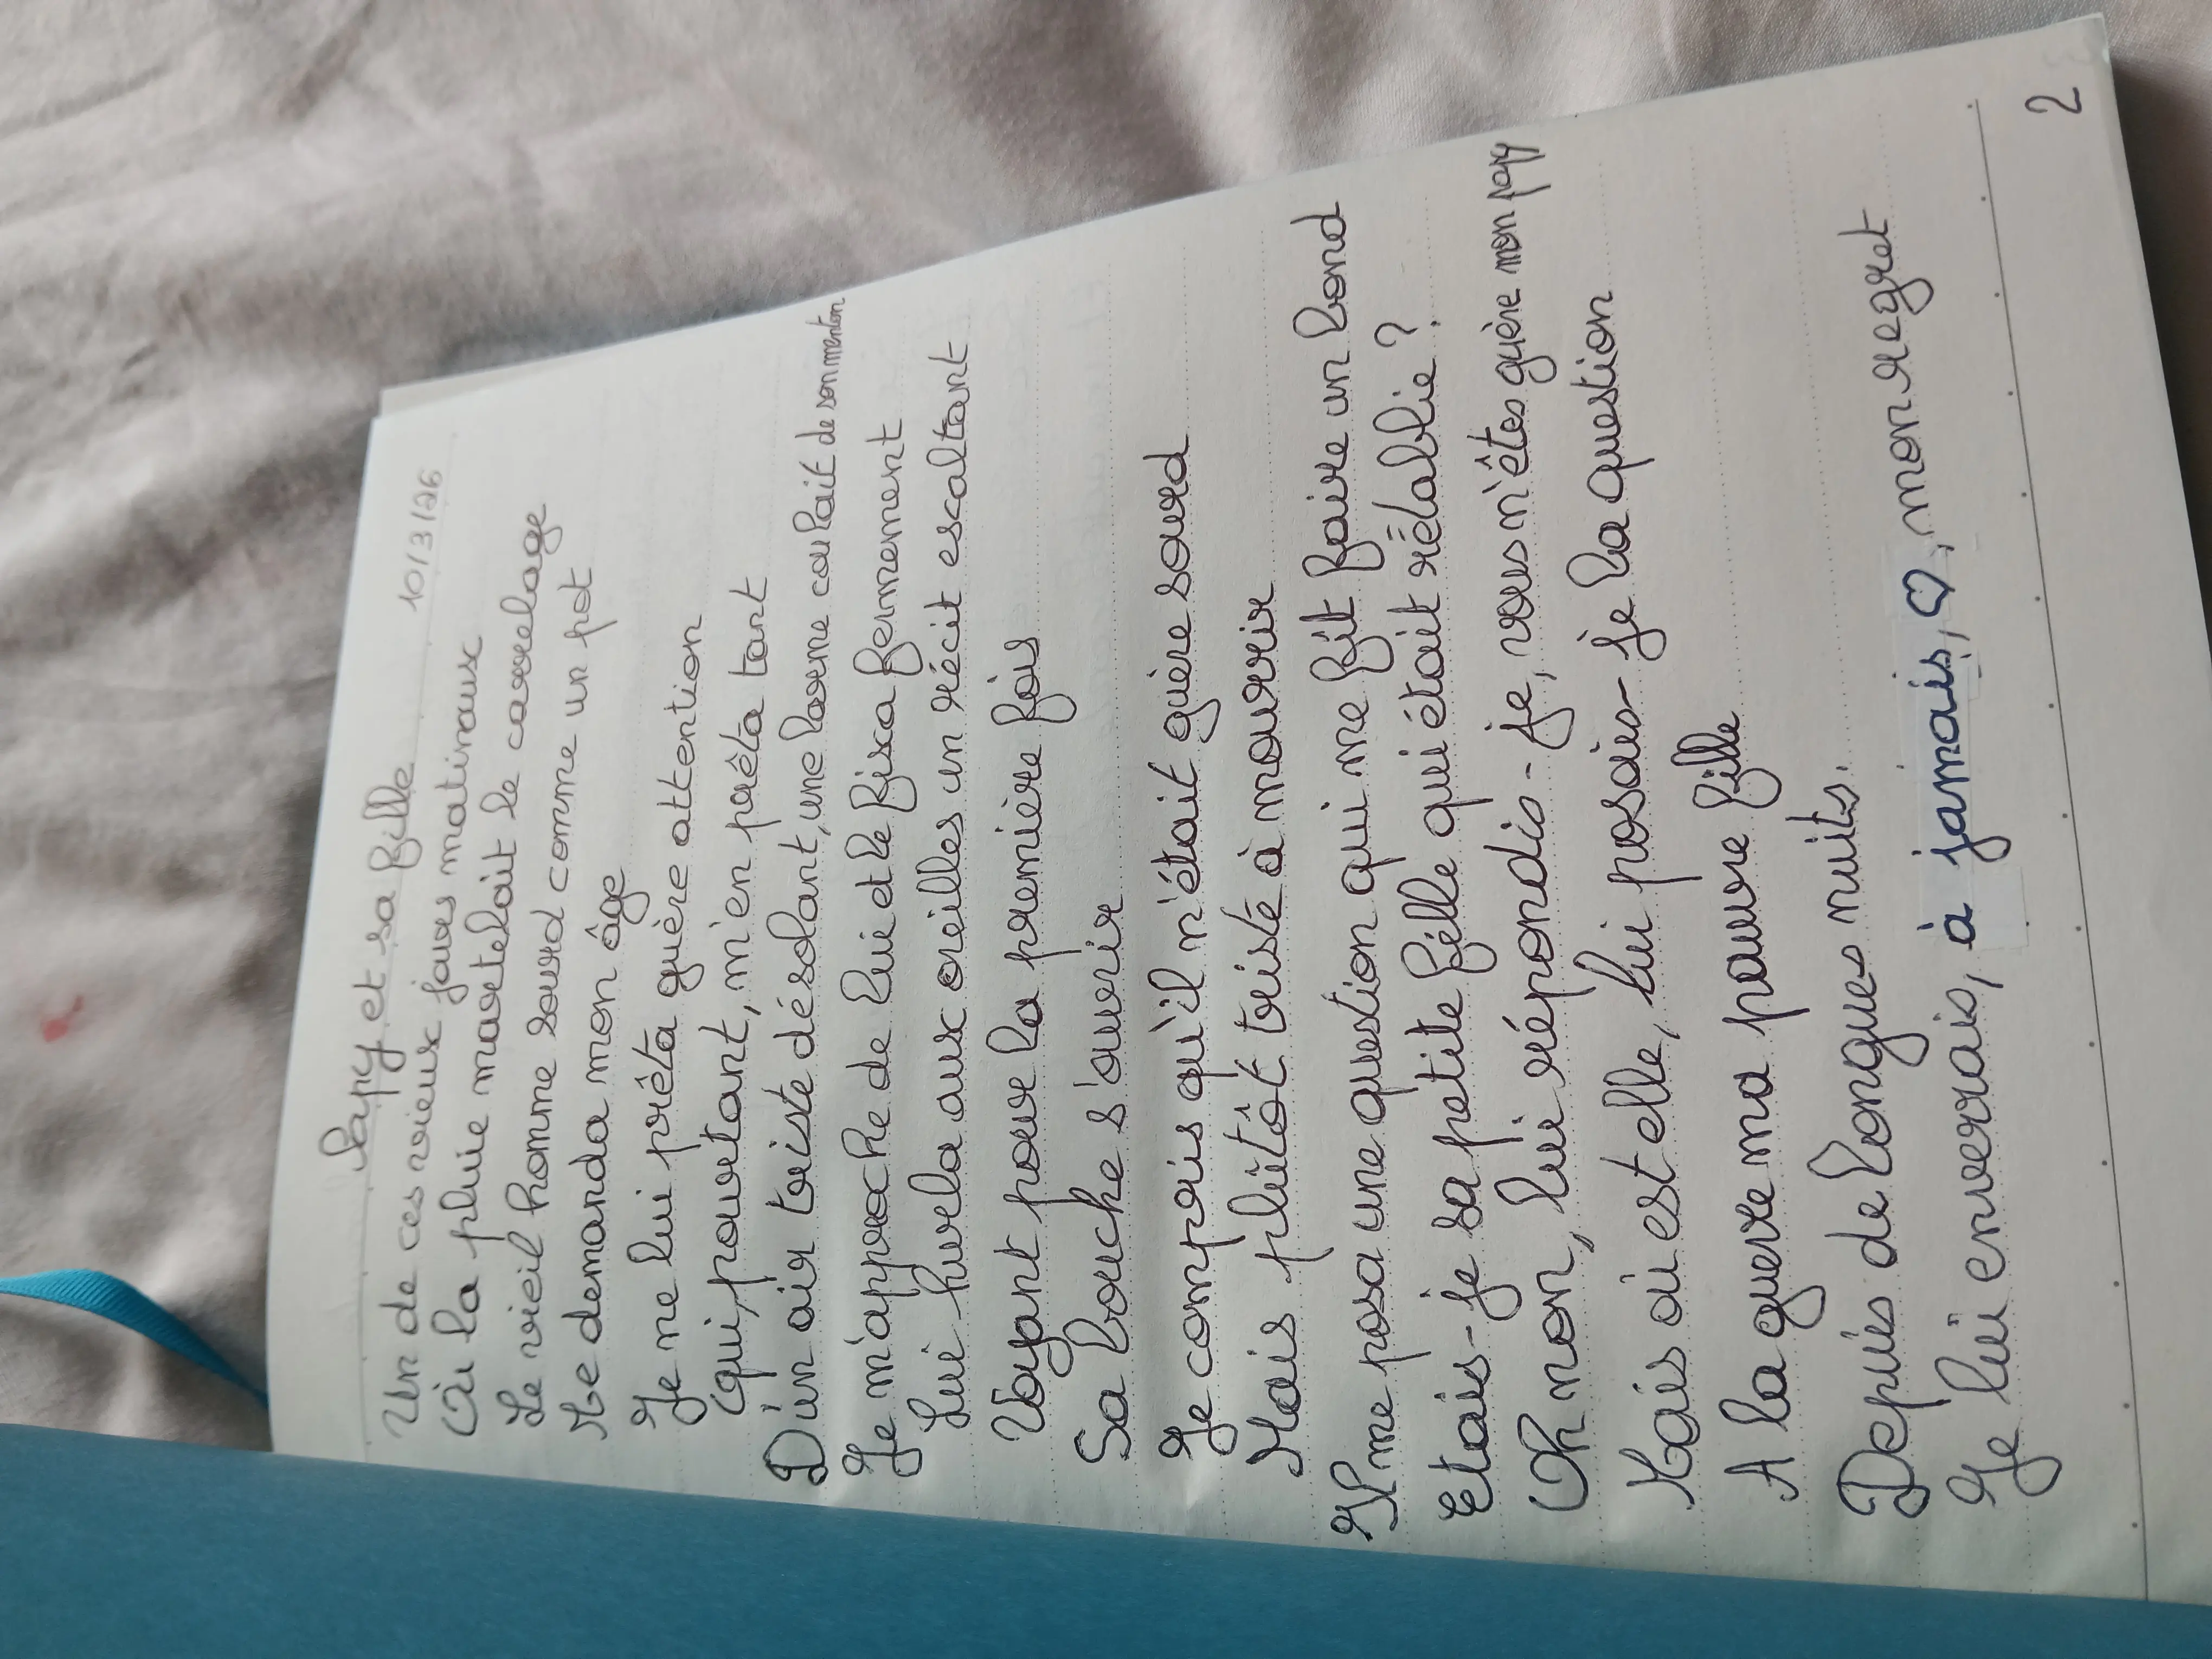 Papy et sa fille
10/3/26
Un de ces vieux jours matinaux
Où la pluie martelait le carrelage
Le vieil homme sourd comme un pot
Me demanda mon âge
Je ne lui prêta guère attention
Qui, pourtant, m'en prêta tant
D'un air triste désolant, une larme coulait de son menton
Je m'approche de lui et le fixa fermement
Lui hurla aux oreilles un récit escaltant
Voyant pour la première fois
Sa bouche s'ouvrir
Je compris qu'il n'était guère sourd
Mais plutôt triste à mourrir
Il me posa une question qui me fit faire un bond
Etais-je sa petite fille qui était rétablie ?
Oh non, lui répondis-je, vous n'êtes guère mon papy
Mais où est elle, lui posais-je la question
A la guerre ma pauvre fille
Depuis de longues nuits.
Je lui enverrais, à jamais, ♡, mon regret
2